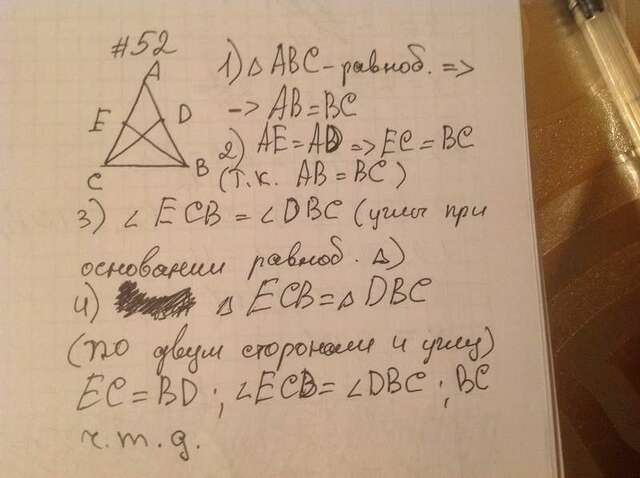 #52
A
E D
C B
1) △ ABC – равноб. =>
-> AB = BC
2) AE = AD => EC = BC
(т.к. AB = BC)
3) ∠ ECB = ∠DBC (углы при
основании равноб. △)
4) △ ECB = △ DBC
(по двум сторонам и углу)
EC = BD ; ∠ECB = ∠DBC ; BC
ч.т.д.